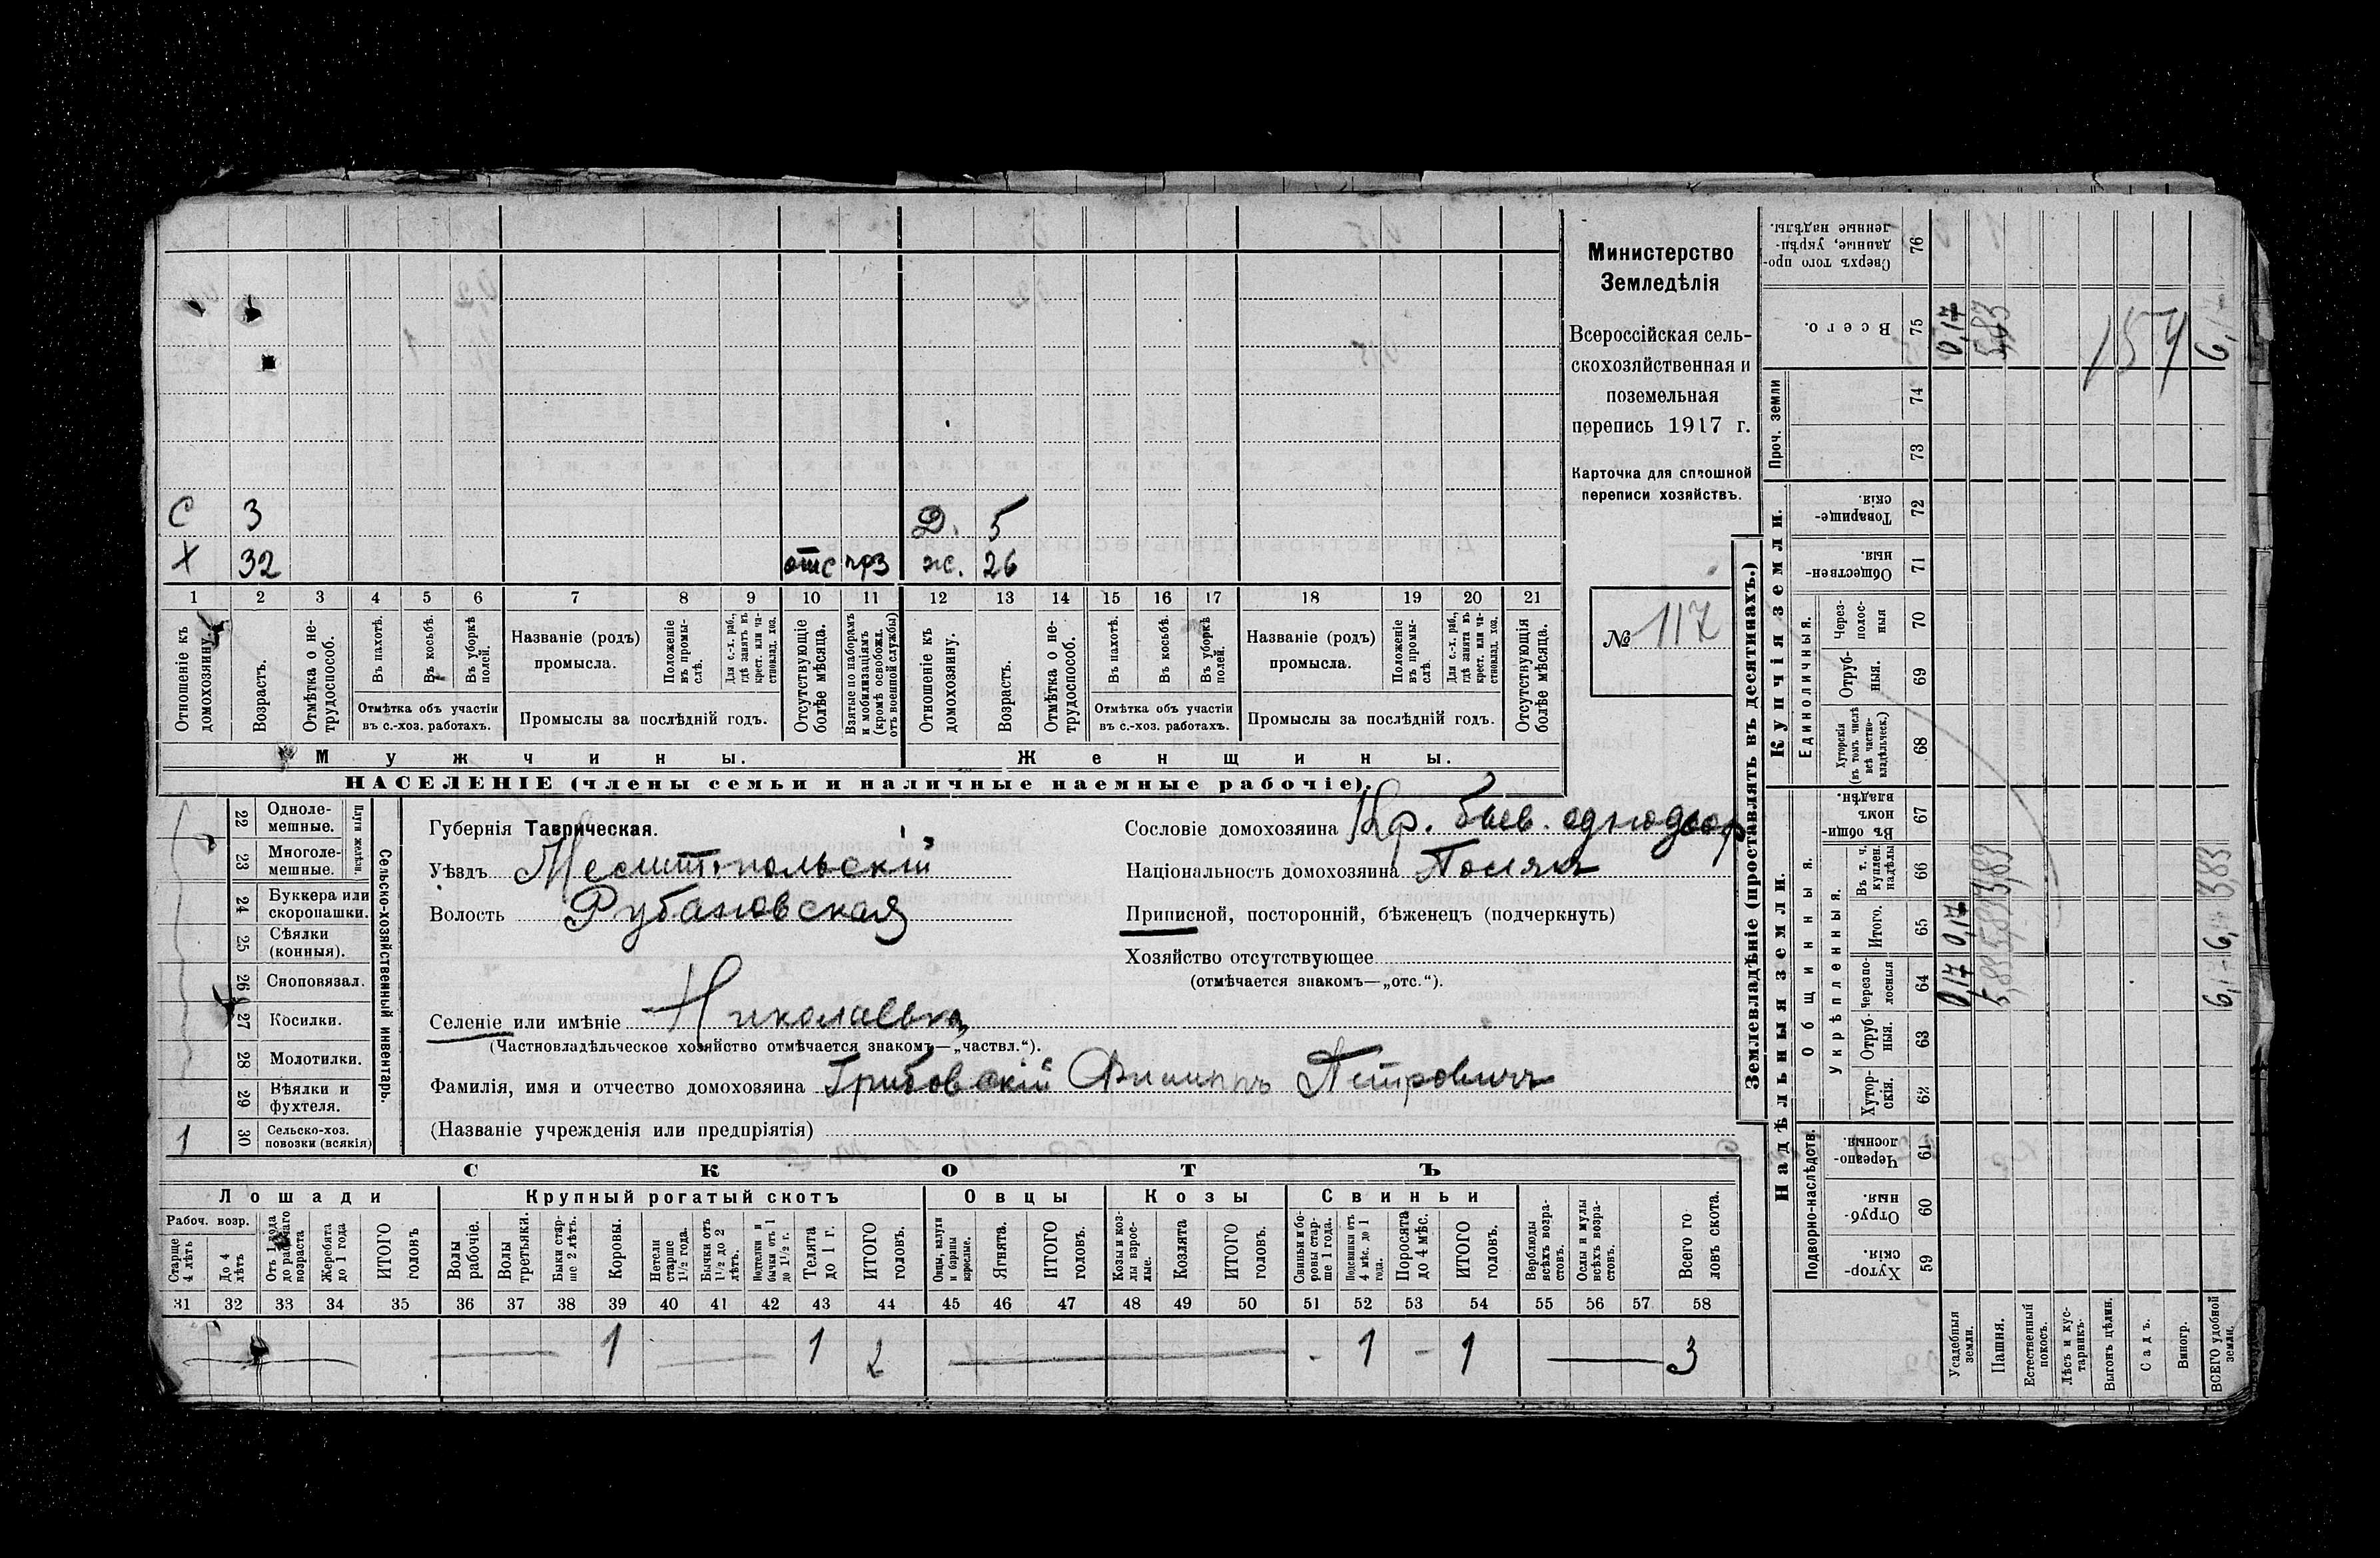 Министерство
Земледѣлія
Всероссійская сель-
скохозяйственная и
поземельная
перепись 1917 г.
Карточка для сплошной
переписи хозяйствъ.
№ 117
С 3 Д. 5
Х 32 отс прз ж. 26
1 2 3 4 5 6 7 8 9 10 11 12 13 14 15 16 17 18 19 20 21
Отношеніе къ домохозяину.
Возрастъ.
Отмѣтка о не-
трудоспособ.
Въ пахотѣ.
Въ косьбѣ.
Въ уборкѣ полей.
Отмѣтка объ участіи
въ с.-хоз. работахъ.
Названіе (родъ)
промысла.
Положеніе въ промы-
слѣ.
Для с.-х. раб., гдѣ занятъ въ крест. или ча-
стновлад. хоз.
Промыслы за послѣдній годъ.
Отсутствующіе болѣе мѣсяца.
Взятые по наборамъ и мобилизаціямъ (кромѣ освобожд. отъ военной службы)
Отношеніе къ домохозяину.
Возрастъ.
Отмѣтка о не-
трудоспособ.
Въ пахотѣ.
Въ косьбѣ.
Въ уборкѣ полей.
Отмѣтка объ участіи
въ с.-хоз. работахъ.
Названіе (родъ)
промысла.
Положеніе въ промы-
слѣ.
Для с.-х. раб., гдѣ занята въ крест. или ча-
стновлад. хоз.
Промыслы за послѣдній годъ.
Отсутствующія болѣе мѣсяца.
Мужчины. Женщины.
НАСЕЛЕНІЕ (члены семьи и наличные наемные рабочіе).
Сельско-хозяйственный инвентарь.
Плуги желѣзн.
22 Одноле-
мешные.
23 Многоле-
мешные.
24 Буккера или
скоропашки.
25 Сѣялки
(конныя).
26 Сноповязал.
27 Косилки.
28 Молотилки.
29 Вѣялки и
фухтеля.
1 30 Сельско-хоз.
повозки (всякія)
Губернія Таврическая.
Уѣздъ Мелитопольскій
Волость Рубановская
Селеніе или имѣніе Николаевка
(Частновладѣльческое хозяйство отмѣчается знакомъ—„частвл.“).
Фамилія, имя и отчество домохозяина Грибовскій Филиппъ Петровичъ
(Названіе учрежденія или предпріятія)
Сословіе домохозяина Кр. бывв. однодвор
Національность домохозяина Полякъ
Приписной, посторонній, бѣженецъ (подчеркнуть)
Хозяйство отсутствующее
(отмѣчается знакомъ—„отс.“).
СКОТЪ
Лошади Крупный рогатый скотъ Овцы Козы Свиньи
Рабоч. возр.
Старше 4 лѣтъ
До 4 лѣтъ
Отъ 1 года до рабочаго возраста
Жеребята до 1 года
ИТОГО головъ
Волы рабочіе.
Волы третьяки.
Быки стар-
ше 2 лѣтъ.
Коровы.
Нетели старше 1½ года.
Бычки отъ 1½ до 2 лѣтъ.
Подтелки и бычки отъ 1 до 1½ г.
Телята до 1 г.
ИТОГО головъ.
Овцы, валухи и бараны взрослые.
Ягнята.
ИТОГО головъ.
Козы и коз-
лы взрос-
лые.
Козлята
ИТОГО головъ.
Свиньи и бо-
ровы стар-
ше 1 года.
Подсвинки отъ 4 мѣс. до 1 года.
Поросята до 4 мѣс.
ИТОГО головъ.
Верблюды всѣхъ возра-
стовъ.
Ослы и мулы всѣхъ возра-
стовъ.
Всего го
ловъ скота.
31 32 33 34 35 36 37 38 39 40 41 42 43 44 45 46 47 48 49 50 51 52 53 54 55 56 57 58
1 1 2 - 1 - 1 3
Землевладѣніе (проставлять въ десятинахъ.)
Сверхъ того про-
данные, укрѣп-
ленные надѣлы. 76
Всего. 75 0,17 5,83 154 6,17
Проч. земли 74 73
Купчія земли.
Товарище-
скія. 72
Обществен-
ныя. 71
Единоличныя.
Через-
полос-
ныя 70
Отруб-
ныя. 69
Хуторскія (въ томъ числѣ всѣ частно-
владѣльческ.) 68
Надѣльныя земли.
Общинныя.
Въ общи-
номъ
владѣн. 67
Укрѣпленныя.
Въ т. ч. куплен. надѣлы 66 3,83 3,83
Итого. 65 0,17 5,83 6,-
Черезпо-
лосныя 64 0,17 5,83 6,-
Отруб-
ныя. 63
Хутор-
скія. 62
Подворно-наслѣдств.
Черезпо-
лосныя. 61
Отруб-
ныя. 60
Хутор-
скія. 59
Усадебныя земли.
Пашня.
Естественный покосъ.
Лѣсъ и кус-
тарникъ.
Выгонъ цѣлин.
Садъ.
Виногр.
ВСЕГО удобной земли.